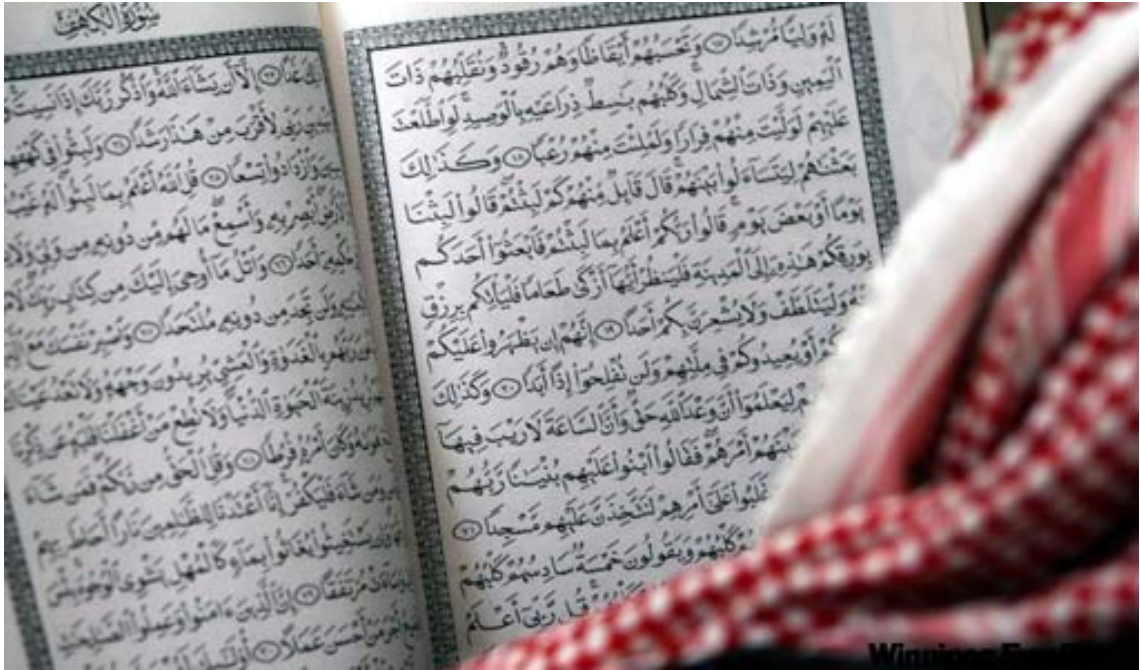 سُورَةُ الكَهْفِ
لَهُۥ وَلِيًّا مُّرْشِدًا ١٧ وَتَحْسَبُهُمْ أَيْقَاظًا وَهُمْ رُقُودٌ وَنُقَلِّبُهُمْ ذَاتَ
ٱلْيَمِينِ وَذَاتَ ٱلشِّمَالِ وَكَلْبُهُم بَٰسِطٌ ذِرَاعَيْهِ بِٱلْوَصِيدِ لَوِ ٱطَّلَعْتَ
عَلَيْهِمْ لَوَلَّيْتَ مِنْهُمْ فِرَارًا وَلَمُلِئْتَ مِنْهُمْ رُعْبًا ١٨ وَكَذَٰلِكَ
بَعَثْنَٰهُمْ لِيَتَسَآءَلُوا۟ بَيْنَهُمْ قَالَ قَآئِلٌ مِّنْهُمْ كَمْ لَبِثْتُمْ قَالُوا۟ لَبِثْنَا
يَوْمًا أَوْ بَعْضَ يَوْمٍ قَالُوا۟ رَبُّكُمْ أَعْلَمُ بِمَا لَبِثْتُمْ فَٱبْعَثُوٓا۟ أَحَدَكُم
بِوَرِقِكُمْ هَٰذِهِۦٓ إِلَى ٱلْمَدِينَةِ فَلْيَنظُرْ أَيُّهَآ أَزْكَىٰ طَعَامًا فَلْيَأْتِكُم بِرِزْقٍ
مِّنْهُ وَلْيَتَلَطَّفْ وَلَا يُشْعِرَنَّ بِكُمْ أَحَدًا ١٩ إِنَّهُمْ إِن يَظْهَرُوا۟ عَلَيْكُمْ
أَوْ يُعِيدُوكُمْ فِى مِلَّتِهِمْ وَلَن تُفْلِحُوٓا۟ إِذًا أَبَدًا ٢٠ وَكَذَٰلِكَ
لِيَعْلَمُوٓا۟ أَنَّ وَعْدَ ٱللَّهِ حَقٌّ وَأَنَّ ٱلسَّاعَةَ لَا رَيْبَ فِيهَآ
بَيْنَهُمْ أَمْرَهُمْ فَقَالُوا۟ ٱبْنُوا۟ عَلَيْهِم بُنْيَٰنًا رَّبُّهُمْ
غَلَبُوا۟ عَلَىٰٓ أَمْرِهِمْ لَنَتَّخِذَنَّ عَلَيْهِم مَّسْجِدًا ٢١
كَلْبُهُمْ وَيَقُولُونَ خَمْسَةٌ سَادِسُهُمْ كَلْبُهُمْ
قُل رَّبِّىٓ أَعْلَمُ
إِلَّآ أَن يَشَآءَ ٱللَّهُ وَٱذْكُر رَّبَّكَ إِذَا نَسِيتَ
رَبِّى لِأَقْرَبَ مِنْ هَٰذَا رَشَدًا ٢٤ وَلَبِثُوا۟ فِى كَهْفِهِمْ
وَٱزْدَادُوا۟ تِسْعًا ٢٥ قُلِ ٱللَّهُ أَعْلَمُ بِمَا لَبِثُوا۟ لَهُۥ غَيْبُ
أَبْصِرْ بِهِۦ وَأَسْمِعْ مَا لَهُم مِّن دُونِهِۦ مِن وَلِىٍّ وَلَا
أَحَدًا ٢٦ وَٱتْلُ مَآ أُوحِىَ إِلَيْكَ مِن كِتَابِ رَبِّكَ لَا
وَلَن تَجِدَ مِن دُونِهِۦ مُلْتَحَدًا ٢٧ وَٱصْبِرْ نَفْسَكَ مَعَ
رَبَّهُم بِٱلْغَدَوٰةِ وَٱلْعَشِىِّ يُرِيدُونَ وَجْهَهُۥ وَلَا تَعْدُ عَيْنَاكَ
زِينَةَ ٱلْحَيَوٰةِ ٱلدُّنْيَا وَلَا تُطِعْ مَنْ أَغْفَلْنَا قَلْبَهُۥ عَن ذِكْرِنَا
هَوَىٰهُ وَكَانَ أَمْرُهُۥ فُرُطًا ٢٨ وَقُلِ ٱلْحَقُّ مِن رَّبِّكُمْ فَمَن شَآءَ
وَمَن شَآءَ فَلْيَكْفُرْ إِنَّآ أَعْتَدْنَا لِلظَّٰلِمِينَ نَارًا أَحَاطَ بِهِمْ
يَسْتَغِيثُوا۟ يُغَاثُوا۟ بِمَآءٍ كَٱلْمُهْلِ يَشْوِى ٱلْوُجُوهَ بِئْسَ
مُرْتَفَقًا ٢٩ إِنَّ ٱلَّذِينَ ءَامَنُوا۟ وَعَمِلُوا۟ ٱلصَّٰلِحَٰتِ
أَجْرَ مَنْ أَحْسَنَ عَمَلًا ٣٠ أُو۟لَٰٓئِكَ
Winnipeg Free